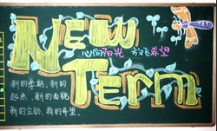 New
心向阳光 放飞希望
Term
新的学期，新的
起点，新的面貌
新的